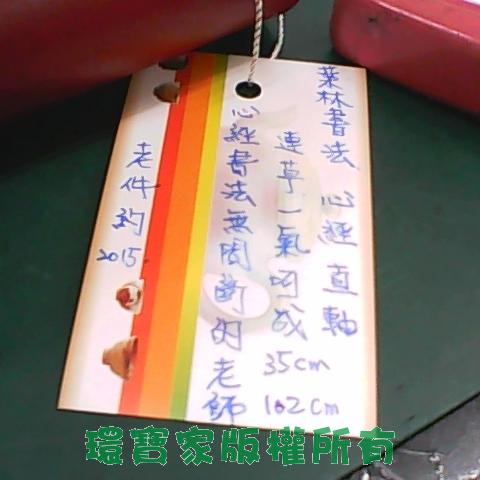 葉林書法 心經 直軸
連草一氣呵成 35cm 102cm
心經書法無間斷的老師
老件約2015
環寶家版權所有